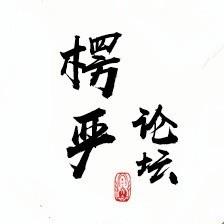 楞严
论坛